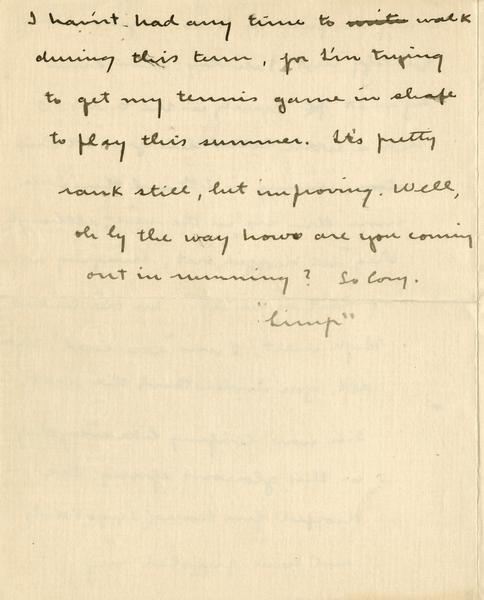 I hav'nt had any time to ~~write~~ walk
during this term, for I'm trying
to get my tennis game in shape
to play this summer. It's pretty
rank still, but improving. Well,
oh by the way how are you coming
out in running? So long.
"Limp"